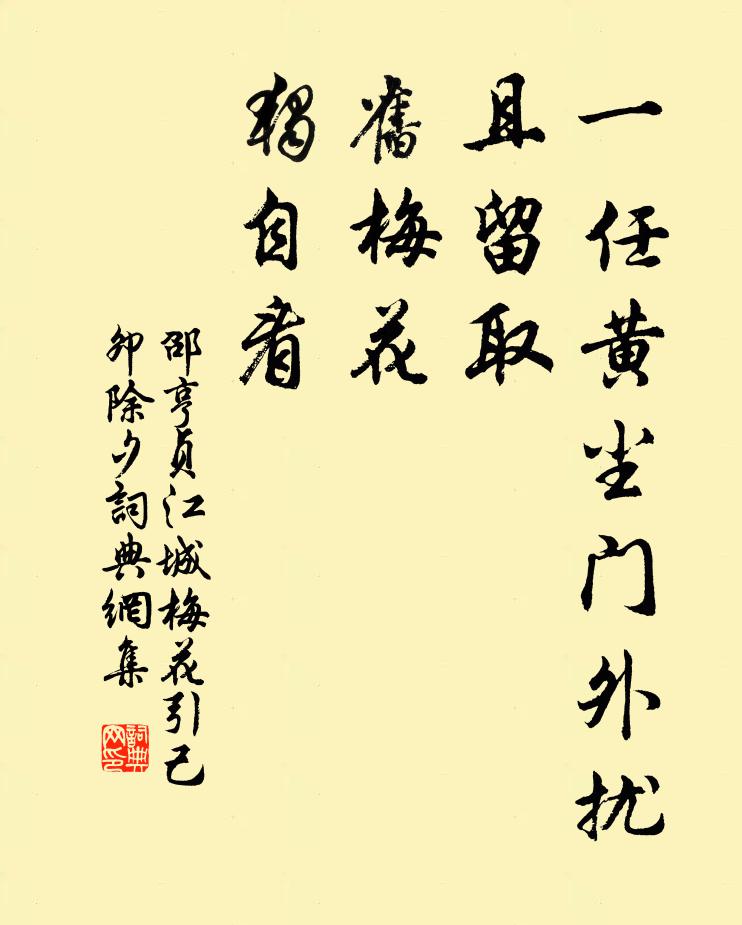 一任黄尘门外扰
且留取
舊梅花
獨自看
邵亨貞江城梅花引己
卯除夕詞典網集
詞典网印